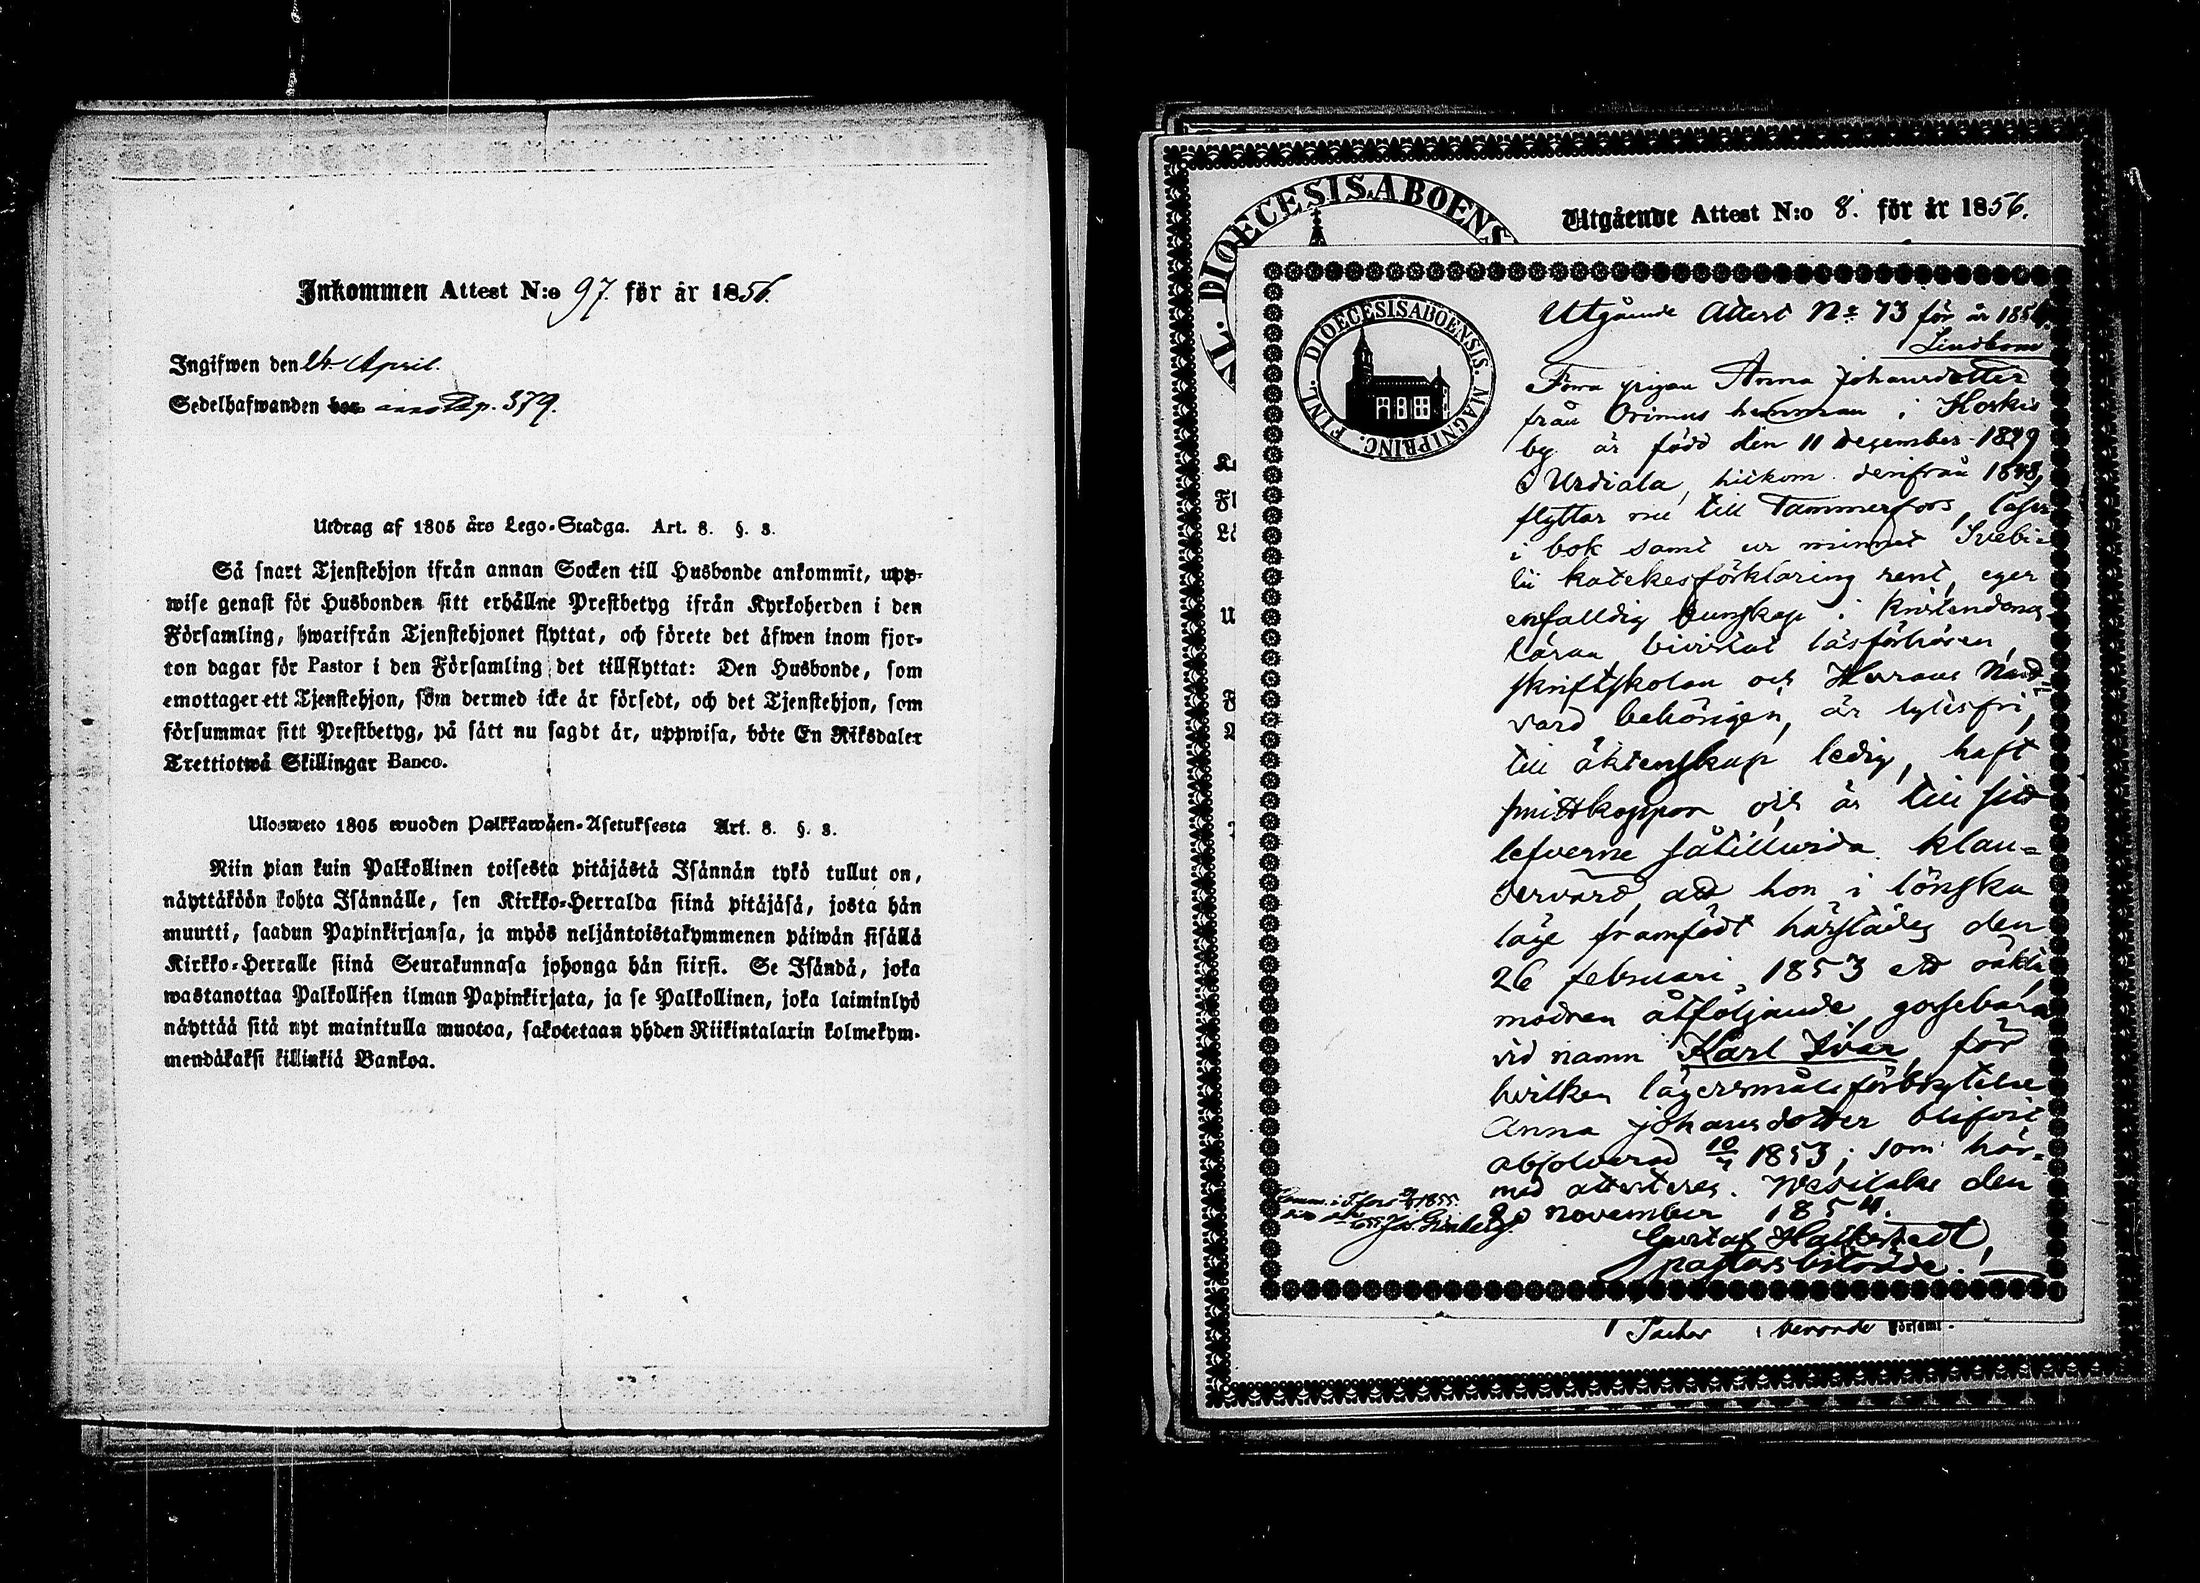 Inkommen Attest N:o 97. för år 1856.
Ingifwen den 24. April.
Sedelhafwanden bor p. 379.
Utdrag af 1805 års Lego-Stadga. Art. 8. §. 3.
Så snart Tjenstehjon ifrån annan Socken till Husbonde ankommit, upp-
wise genast för Husbonden sitt erhållne Prestbetyg ifrån Kyrkoherden i den
Församling, hwarifrån Tjenstehjonet flyttat, och förete det äfwen inom fjor-
ton dagar för Pastor i den Församling det tillflyttat: Den Husbonde, som
emottager ett Tjenstehjon, som dermed icke är försedt, och det Tjenstehjon, som
försummar sitt Prestbetyg, på sätt nu sagdt är, uppwisa, böte En Riksdaler
Trettiotwå Skillingar Banco.
Ulosweto 1805 wuoden Palkkawäen-Asetuksesta Art. 8. §. 3.
Niin pian kuin Palkollinen toisesta pitäjästä Isännän tykö tullut on,
näyttäköön kohta Isännälle, sen Kirkko-Herralda siinä pitäjäsä, josta hän
muutti, saadun Papinkirjansa, ja myös neljäntoistakymmenen päiwän sisällä
Kirkko-Herralle siinä Seurakunnasa johonga hän siirsi. Se Isändä, joka
wastanottaa Palkollisen ilman Papinkirjata, ja se Palkollinen, joka laiminlyö
näyttää sitä nyt mainitulla muotoa, sakotetaan yhden Riikintalarin kolmekym-
mendäkaksi killinkiä Bankoa.
DIOECESIS ABOENS
Utgående Attest N:o 8. för år 1856.
FINL. DIOECESIS ABOENSIS. MAGNI PRINC.
Utgående Attest No 73 för år 1854.
Lindbom
Förra pigan Anna Johansdotter
från Orimus hemman i Koskis
by är född den 11 december 1829
i Urdiala, hitkom derifrån 1848,
flyttar nu till Tammerfors, läser
i bok samt ur minnet Svebi-
lii katekesförklaring rent, eger
enfalldig kunskap i kristendoms
läran bivistat läsförhören,
skriftskolan och Herrans Natt-
vard behörigen, är lytesfri,
till äktenskap ledig, haft
smittkoppor och är till sid
lefverne såtillvida klan-
dervärd, att hon i lönska
läge framfödt härstädes den
26 februari 1853 ett oäkta
modren åtföljande gossebarn
vid namn Karl Ivar, för
hvilken lägersmålsförbrytelse
Anna Johansdotter blifvit
absolverad 10/4 1853; som här-
med attesteras. Wesilaks den
november 1854.
Gustaf
pastorsbiträde.
1855.
Pastor i berörde Församl.